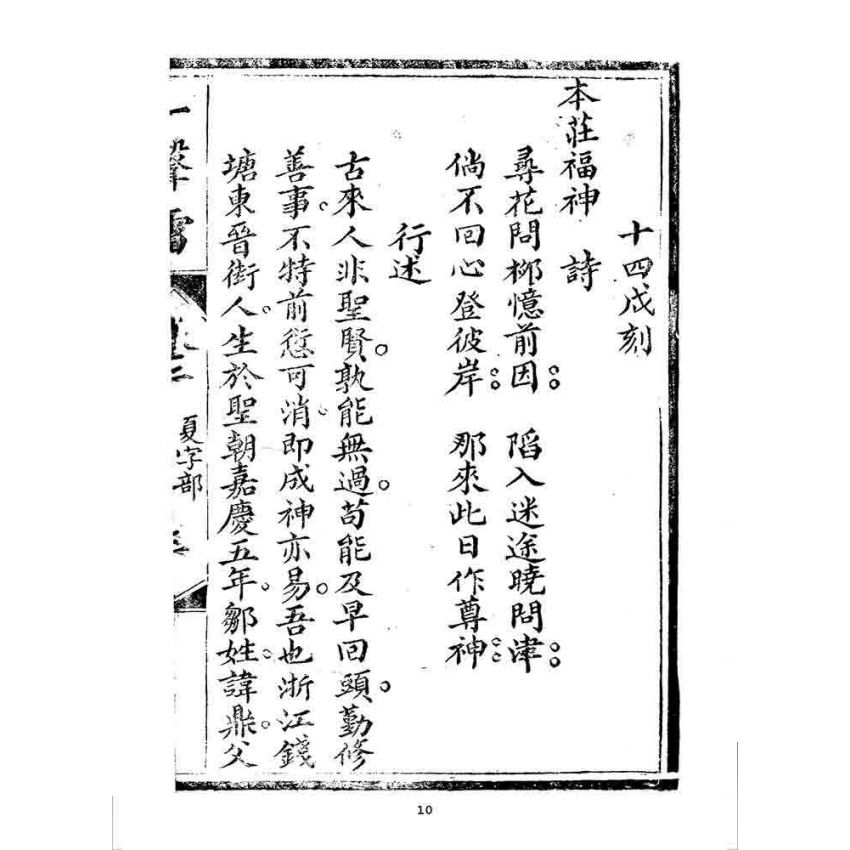 十四戌刻
本莊福神　詩
尋花問柳憶前因。陷入迷途曉問津。
倘不回心登彼岸。那來此日作尊神。
行述
古來人非聖賢。孰能無過。苟能及早回頭。勤修
善事。不特前愆可消。即成神亦易。吾也浙江錢
塘東晉街人。生於聖朝嘉慶五年。鄒姓。諱鼎。父
一聲雷
卷二
夏字部
10